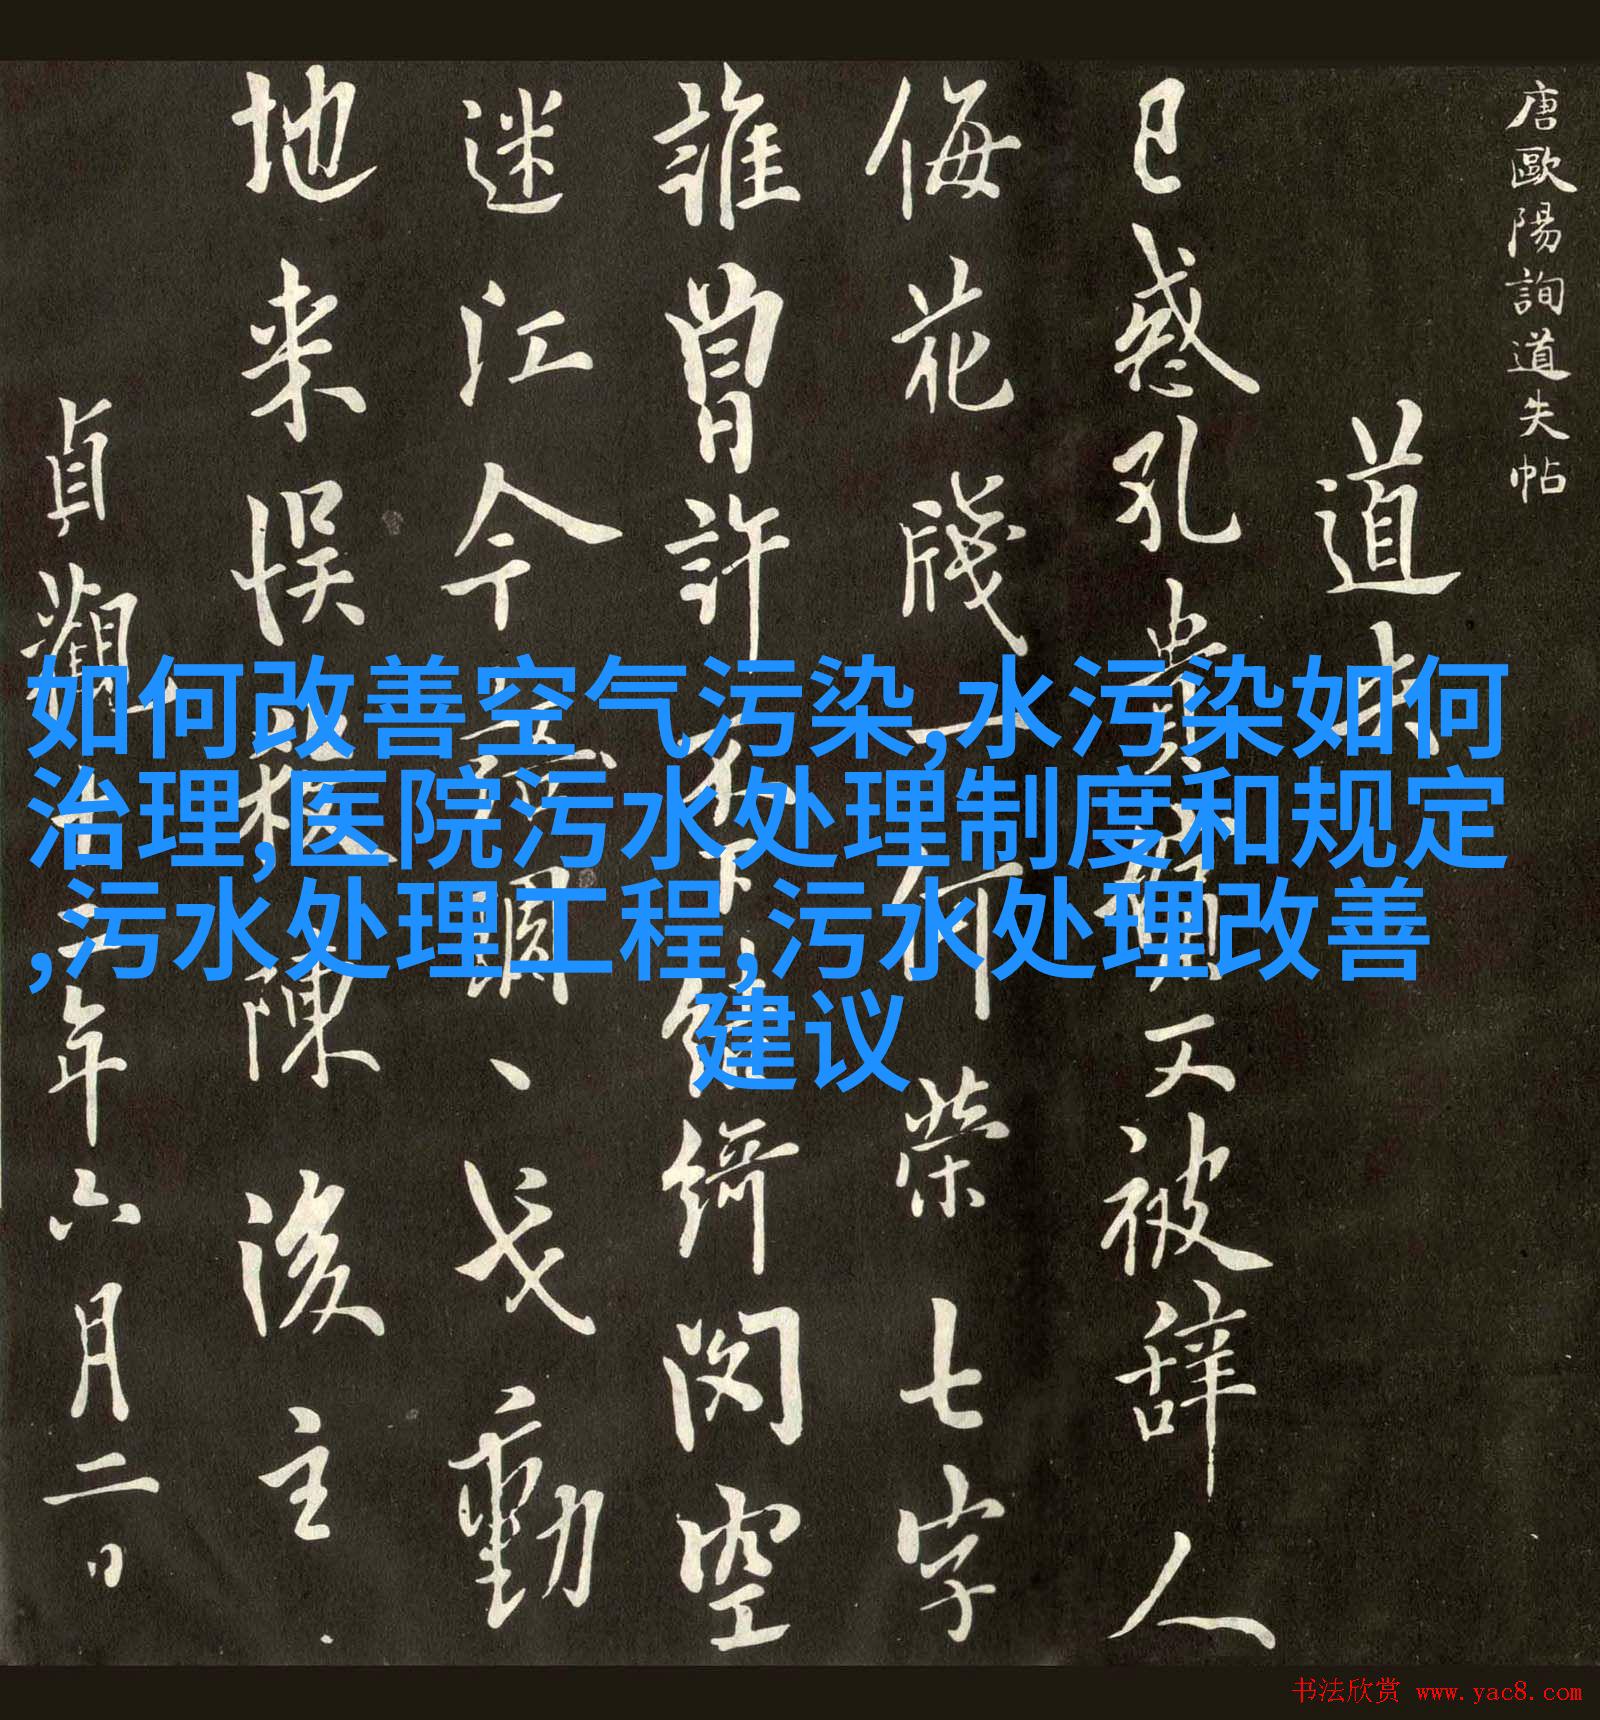 唐歐陽詢道失帖
道失
已惑孔貴嬪又被辞人
侮花牋一何榮七字
誰曾許不下鏈綺閃空
迷江今
戈動
地来悮
陳後主
貞觀十二年六月二日
如何改善空气污染,水污染如何
治理,医院污水处理制度和规定
,污水处理工程,污水处理改善
建议
书法欣赏 www.yac8.com